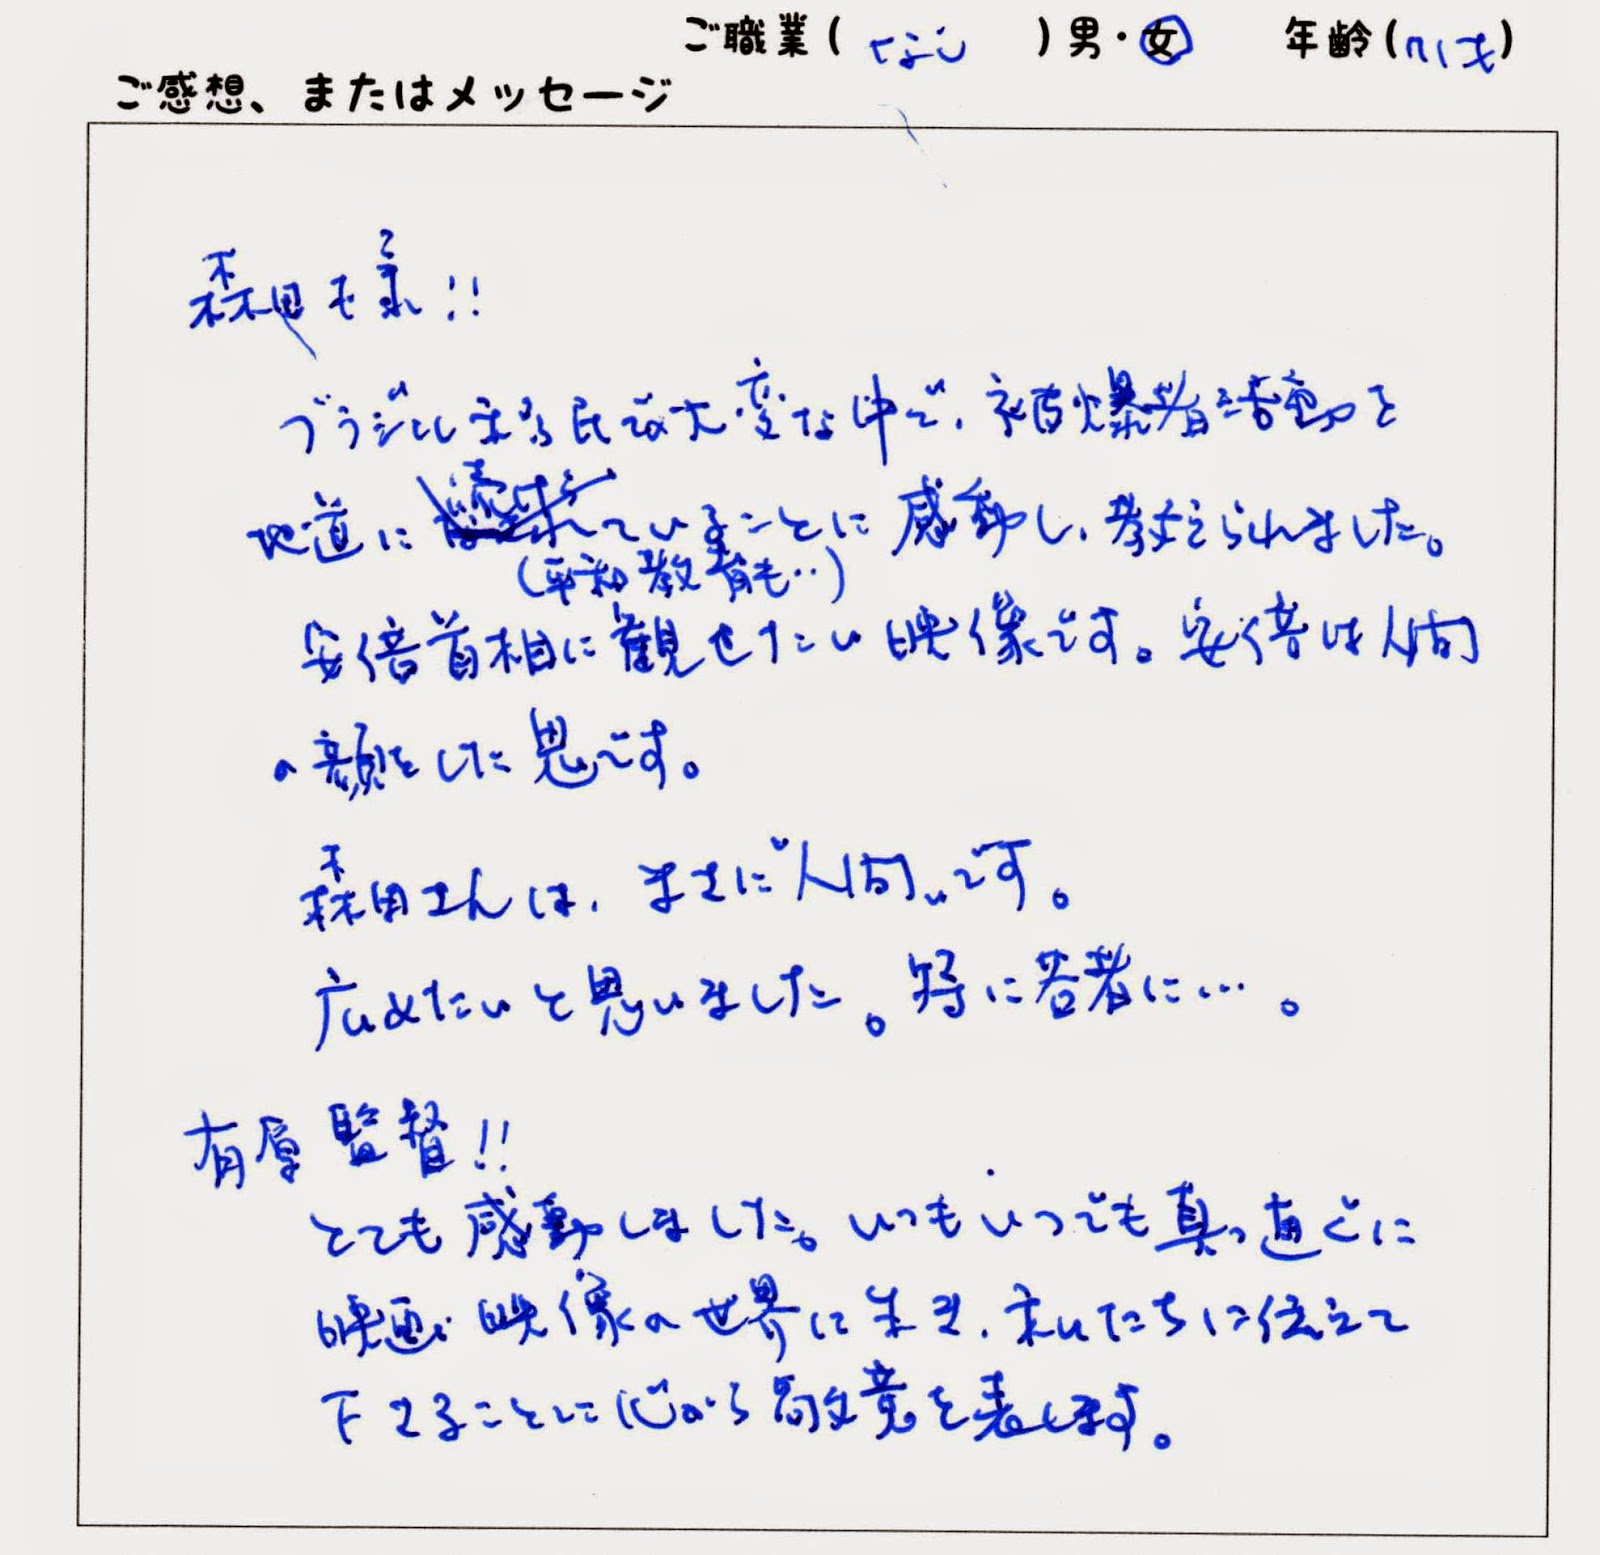 ご職業(なし)男・女 年齢(71才)
ご感想、またはメッセージ
森田ご夫妻!!
ブラジル移民で大変な中で、被爆者活動を
地道に続けていることに感動し、教えられました。
(平和教育も‥)
安倍首相に観せたい映像です。安倍は人間
の顔をした鬼です。
森田さんは、まさに"人間"です。
広めたいと思いました。特に若者に…。
有原監督!!
とても感動しました。いつもいつでも真っ直ぐに
映画 映像の世界に生き、私たちに伝えて
下さることに心から敬意を表します。